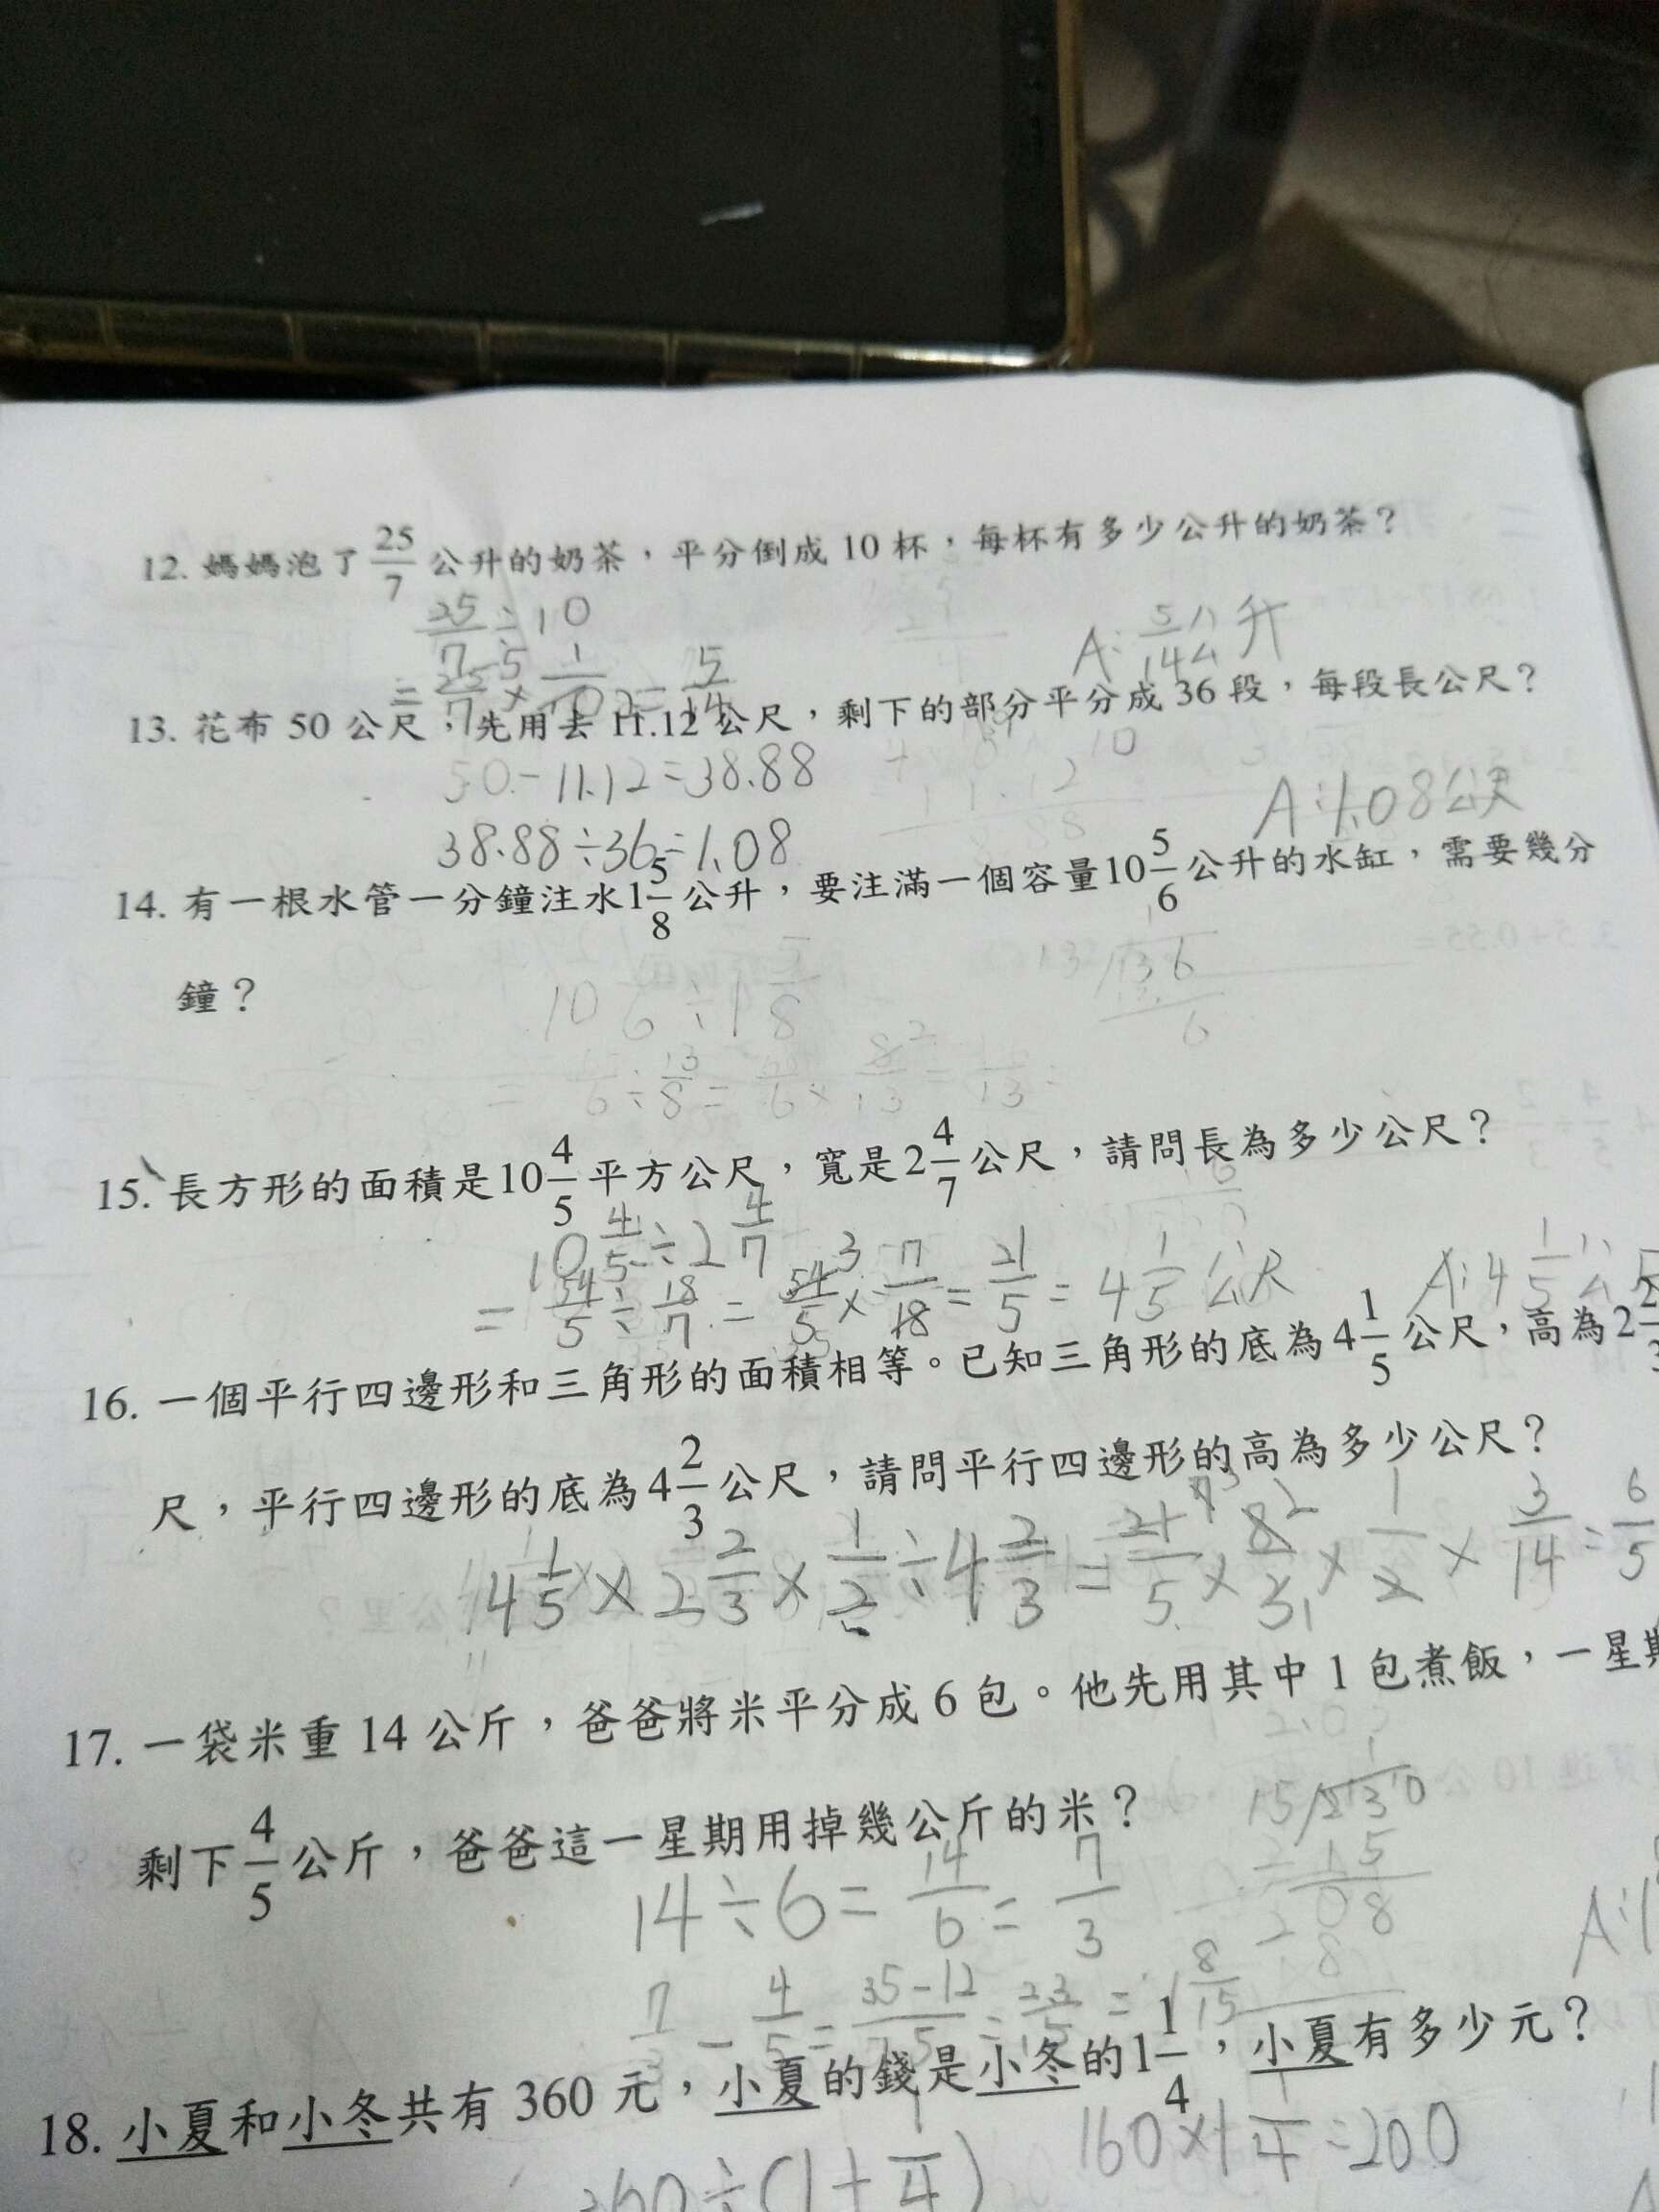 12. 媽媽泡了 25/7 公升的奶茶，平分倒成 10 杯，每杯有多少公升的奶茶？
25/7 ÷ 10
= 25/7 × 1/10 = 5/14
A: 5/14 公升
13. 花布 50 公尺，先用去 11.12 公尺，剩下的部分平分成 36 段，每段長公尺？
50 - 11.12 = 38.88
38.88 ÷ 36 = 1.08
A: 1.08 公尺
14. 有一根水管一分鐘注水 1 5/8 公升，要注滿一個容量 10 5/6 公升的水缸，需要幾分
鐘？
15. 長方形的面積是 10 4/5 平方公尺，寬是 2 4/7 公尺，請問長為多少公尺？
10 4/5 ÷ 2 4/7
= 54/5 ÷ 18/7 = 54/5 × 7/18 = 21/5 = 4 1/5 公尺
A: 4 1/5 公
16. 一個平行四邊形和三角形的面積相等。已知三角形的底為 4 1/5 公尺，高為 2 2/3
尺，平行四邊形的底為 4 2/3 公尺，請問平行四邊形的高為多少公尺？
4 1/5 × 2 2/3 × 1/2 ÷ 4 2/3 = 21/5 × 8/3 × 1/2 × 3/14 = 6/5
17. 一袋米重 14 公斤，爸爸將米平分成 6 包。他先用其中 1 包煮飯，一星期
剩下 4/5 公斤，爸爸這一星期用掉幾公斤的米？
14 ÷ 6 = 14/6 = 7/3
7/3 - 4/5 = 35-12/15 = 23/15 = 1 8/15
A: 1
18. 小夏和小冬共有 360 元，小夏的錢是小冬的 1 1/4，小夏有多少元？
360 ÷ (1 + 1/4)
160 × 1 1/4 = 200